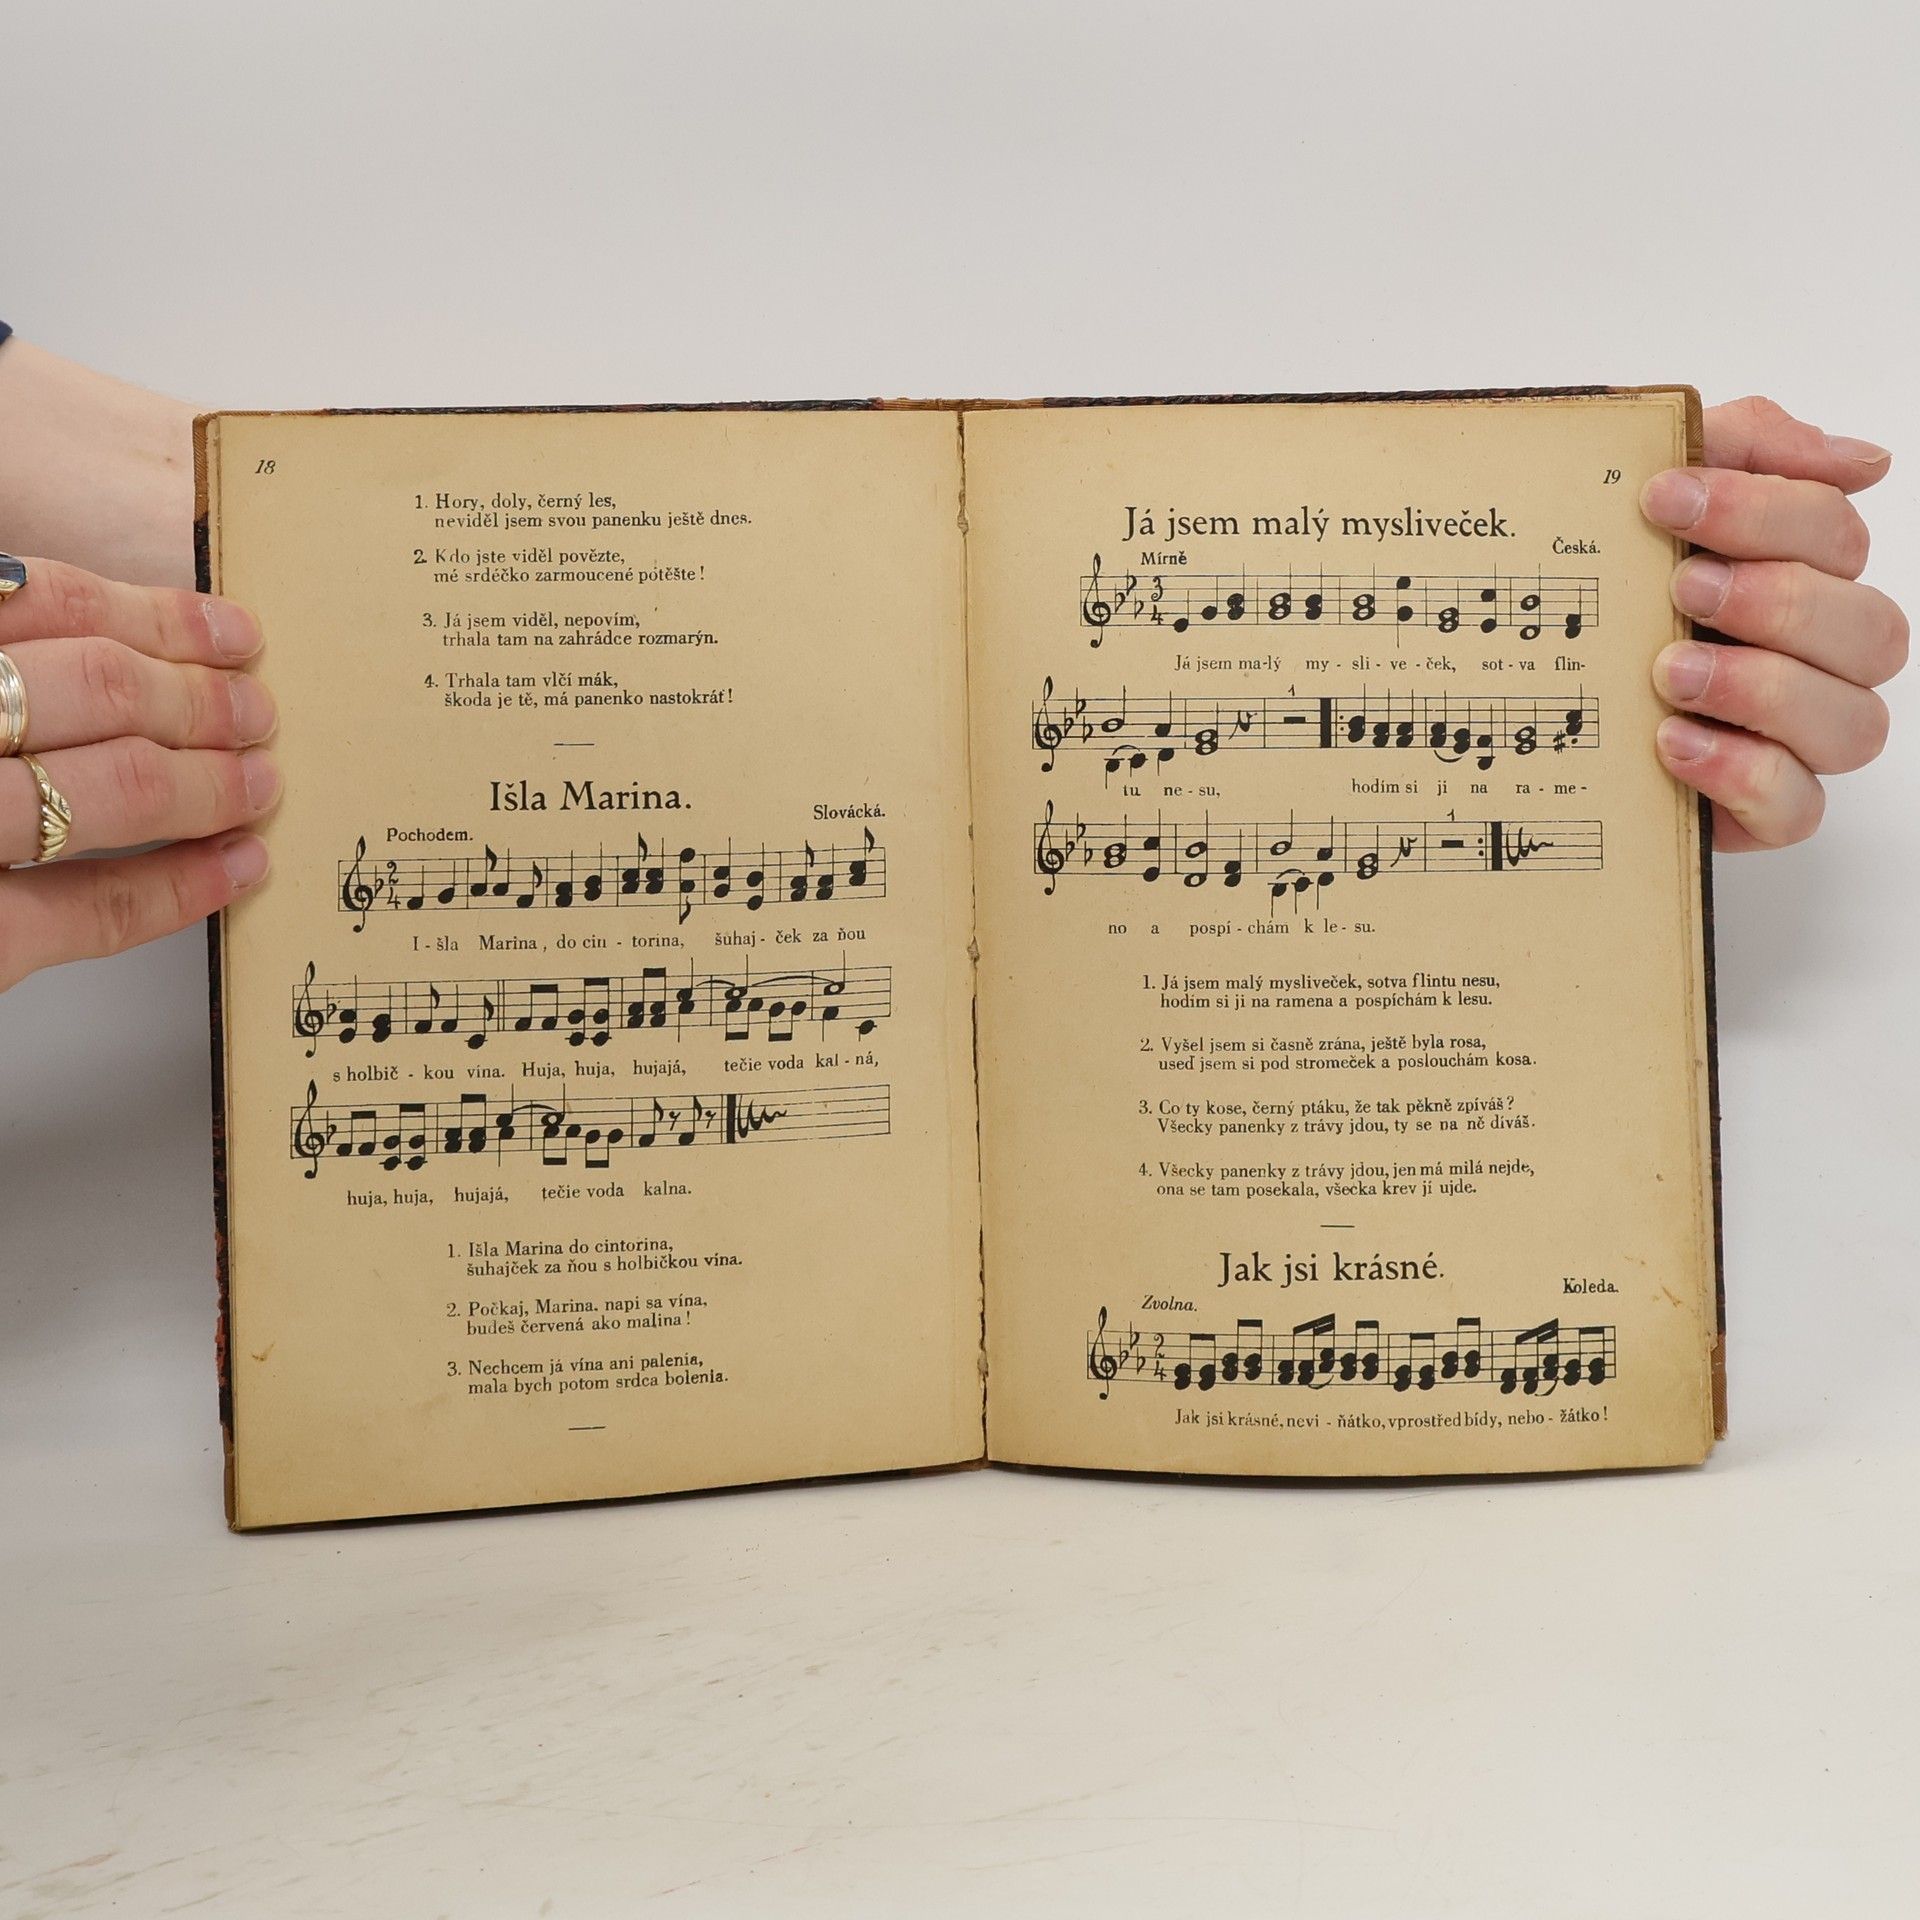 18
1. Hory, doly, černý les,
neviděl jsem svou panenku ještě dnes.
2. Kdo jste viděl povězte,
mé srdéčko zarmoucené potěšte!
3. Já jsem viděl, nepovím,
trhala tam na zahrádce rozmarýn.
4. Trhala tam vlčí mák,
škoda je tě, má panenko nastokrát!
Išla Marina.
Slovácká.
Pochodem.
2
4
I - šla Marina, do cin - torina, šuhaj - ček za ňou
s holbič - kou vína. Huja, huja, hujajá, tečie voda kal - ná,
huja, huja, hujajá, tečie voda kalna.
1. Išla Marina do cintorina,
šuhajček za ňou s holbičkou vína.
2. Počkaj, Marina. napi sa vína,
budeš červená ako malina!
3. Nechcem já vína ani palenia,
mala bych potom srdca bolenia.
19
Já jsem malý mysliveček.
Česká.
Mírně
3
4
Já jsem ma-lý my - sli - ve - ček, sot - va flin-
1
tu ne - su, hodím si ji na ra - me -
1
no a pospí - chám k le - su.
1. Já jsem malý mysliveček, sotva flintu nesu,
hodím si ji na ramena a pospíchám k lesu.
2. Vyšel jsem si časně zrána, ještě byla rosa,
useď jsem si pod stromeček a poslouchám kosa.
3. Co ty kose, černý ptáku, že tak pěkně zpíváš?
Všecky panenky z trávy jdou, ty se na ně díváš.
4. Všecky panenky z trávy jdou, jen má milá nejde,
ona se tam posekala, všecka krev jí ujde.
Jak jsi krásné.
Koleda.
Zvolna.
2
4
Jak jsi krásné, nevi - ňátko, vprostřed bídy, nebo - žátko!